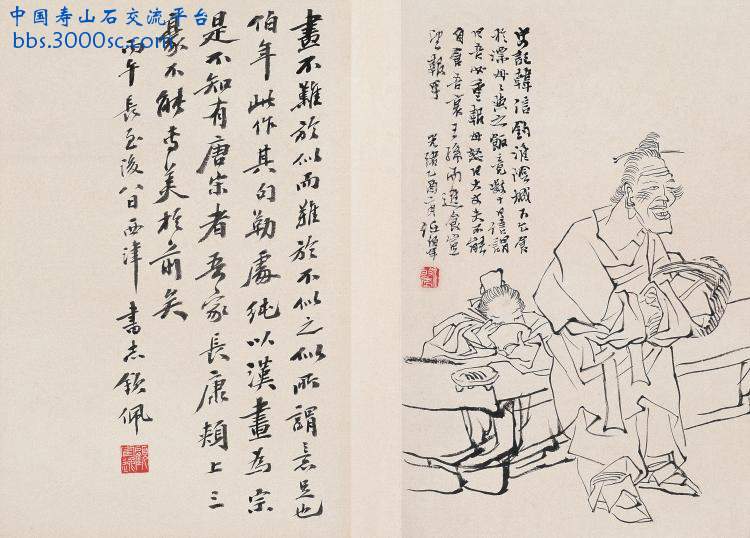 中国寿山石交流平台
bbs.3000sc.com
史記韓信釣淮陰城下乞食
於漂母〻與之飯竟數十日信謂
曰吾必重報母怒曰大丈夫不能
自食吾哀王孫而進食豈
望報乎
光緒乙酉二月任伯年
畫不難於似而難於不似之似所謂意足也
伯年此作其勾勒處純以漢畫為宗
是不知有唐宋者吾家長康頰上三
豪不能專美於前矣
丙午長至後八日西津書志欽佩